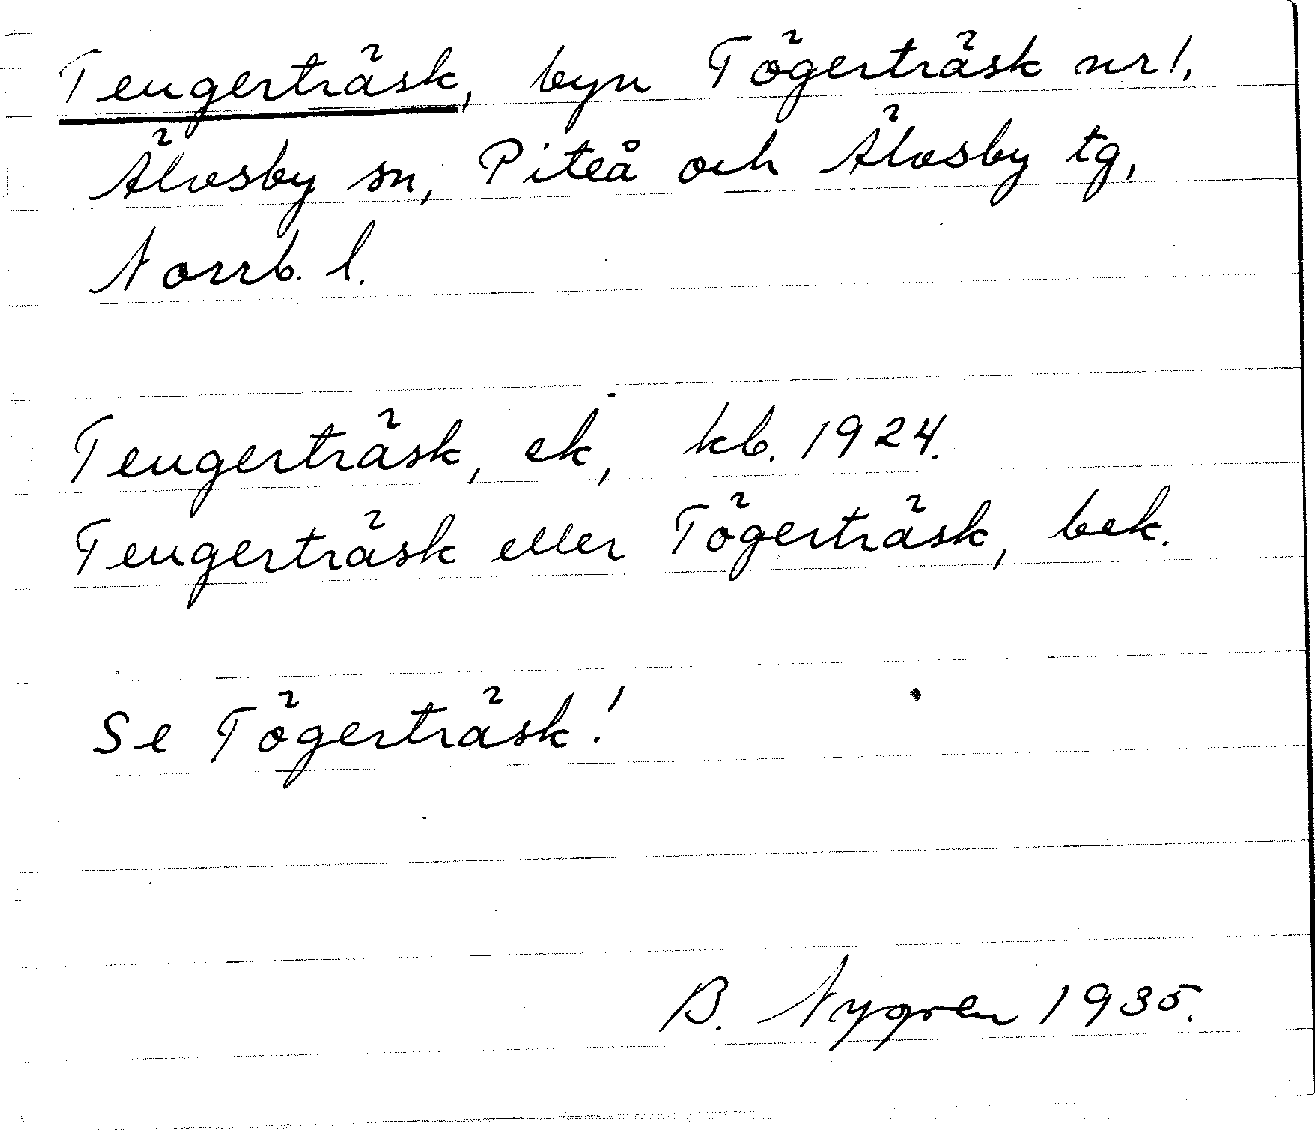 Teugerträsk, byn Tögerträsk nr 1,
Älvsby sn, Piteå och Älvsby tg,
Norrb. l.
Teugerträsk, ek, kb. 1924.
Teugerträsk eller Tögerträsk, bek.
Se Tögerträsk!
B. Nygren 1935.